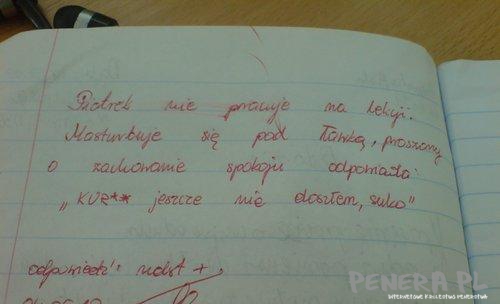 Piotrek nie pracuje na lekcji.
Masturbuje się pod ławką, proszony
o zachowanie spokoju odpowiada:
„KUR** jeszcze nie doszłem, suko"
odpowiedź: ndst +,
PENERA.PL